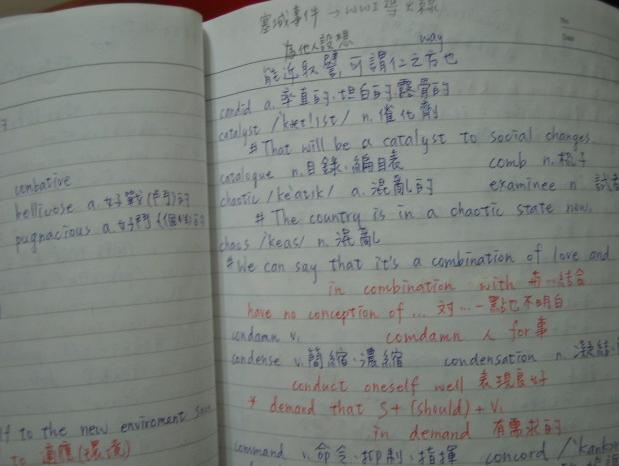 combative
bellicose a. 好戰(鬥)的
pugnacious a. 好鬥(個性)的
lf to the new enviroment
to 適應(環境)
塞城事件 → WWI 導火線
為他人設想 way
能近取譬,可謂仁之方也
candid a. 率直的.坦白的.露骨的
catalyst /kætlɪst/ n. 催化劑
# That will be a catalyst to social changes.
catalogue n. 目錄.編目表 comb n. 梳子
chaotic /keˈatɪk/ a. 混亂的 examinee n.
# The country is in a chaotic state now.
chaos /keas/ n. 混亂
# We can say that it's a combination of love and
in combination with 布…結合
have no conception of ... 對…一點也不明白
condamn v. comdamn 人 for 事
condense v. 簡縮.濃縮 condensation n. 凝結
conduct oneself well 表現良好
* demand that S + (should) + V.
in demand 有需求的
command v. 命令.抑制.指揮 concord